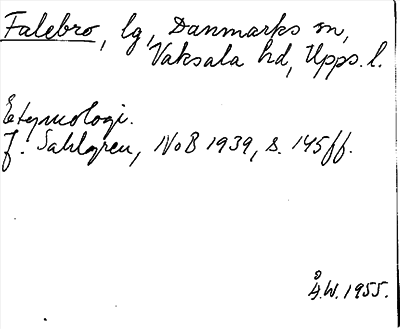 Falebro, lg, Danmarks sn,
Vaksala hd, Upps. l.
Etymologi.
J. Sahlgren, NoB 1939, s. 145ff.
Å.W. 1955.